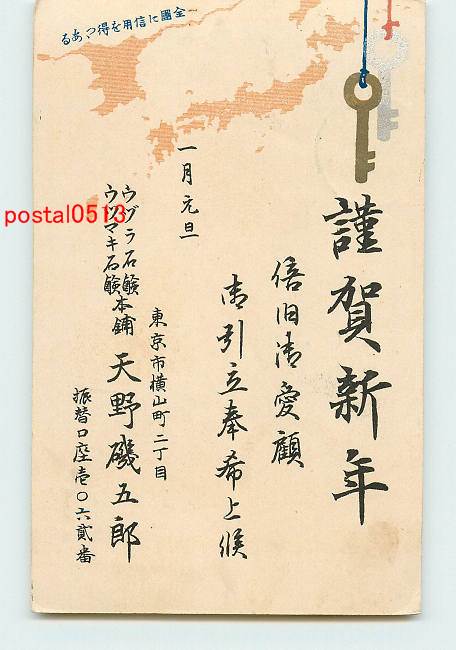 全國に信用を得つゝある
謹賀新年
倍旧御愛顧
御引立奉希上候
一月元旦
東京市横山町二丁目
ウヅラ石鹸
ウヅマキ石鹸
本舗 天野磯五郎
振替口座壱〇六貳番
postal0513